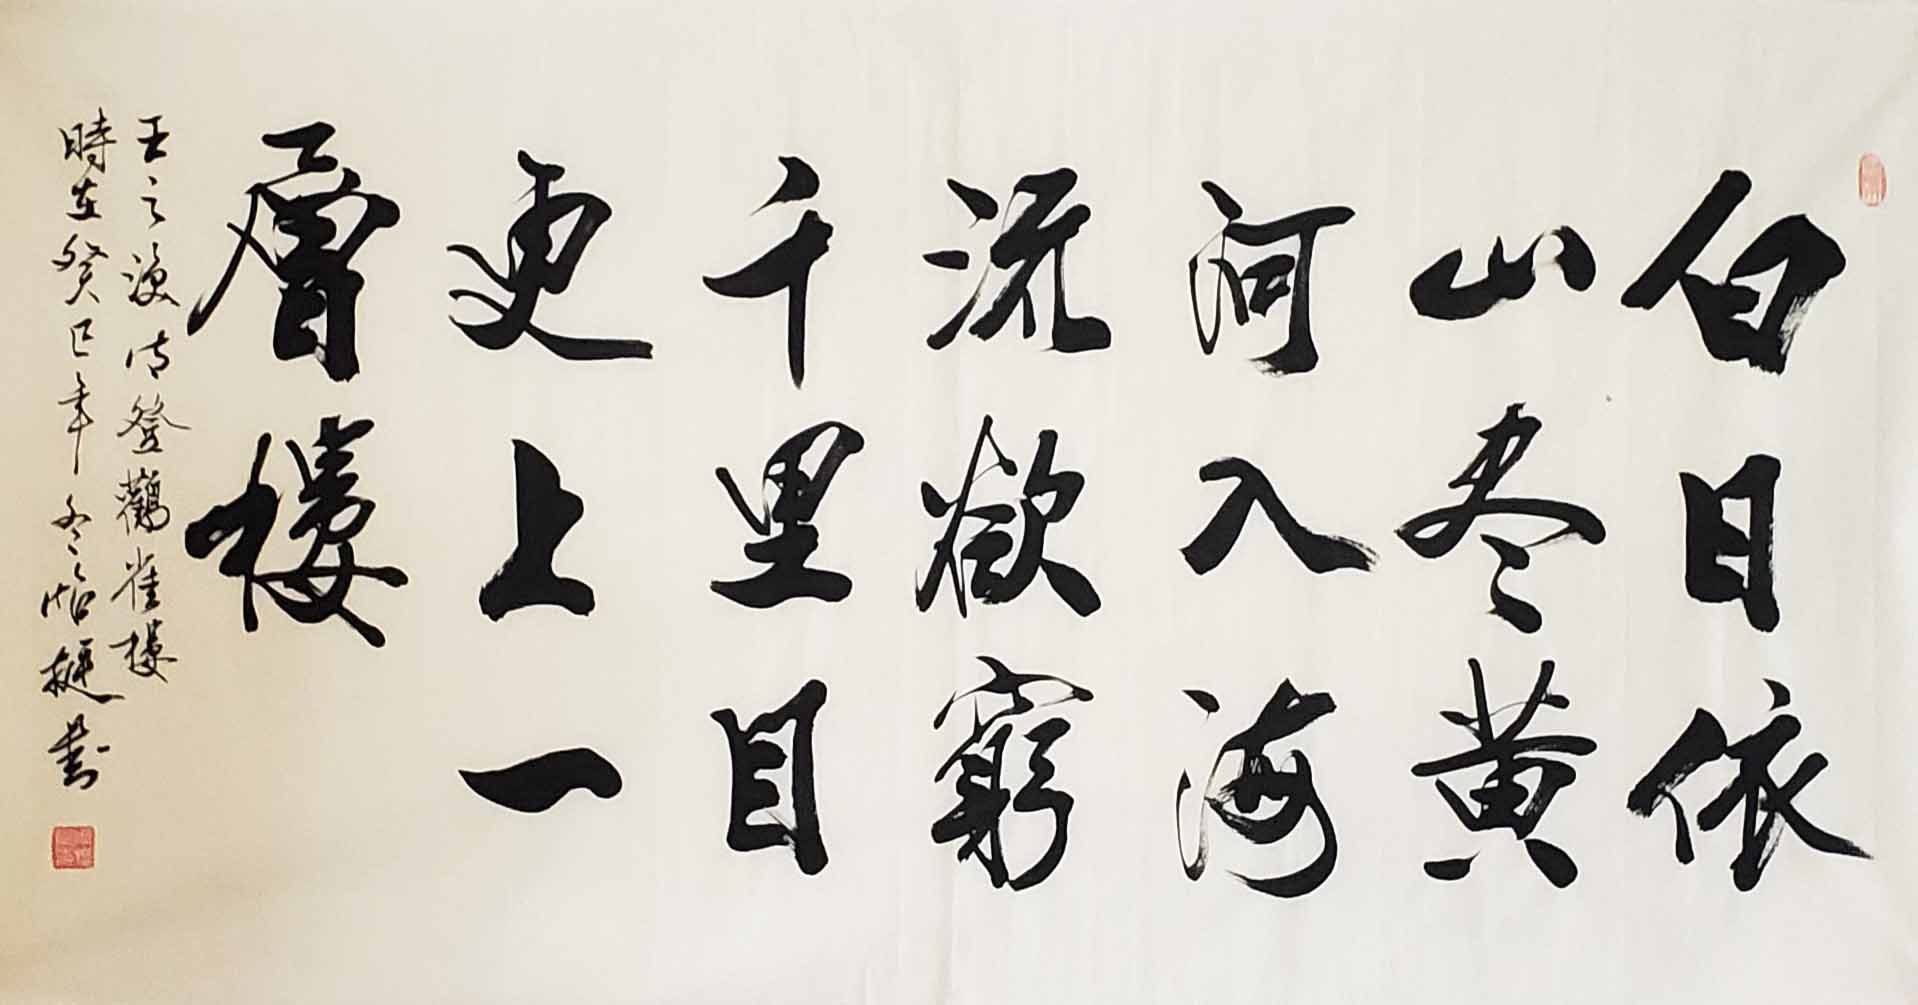 白日依
山尽黄
河入海
流欲窮
千里目
更上一
層樓
王之渙诗登鸛雀樓
時在癸巳年冬怡梃書